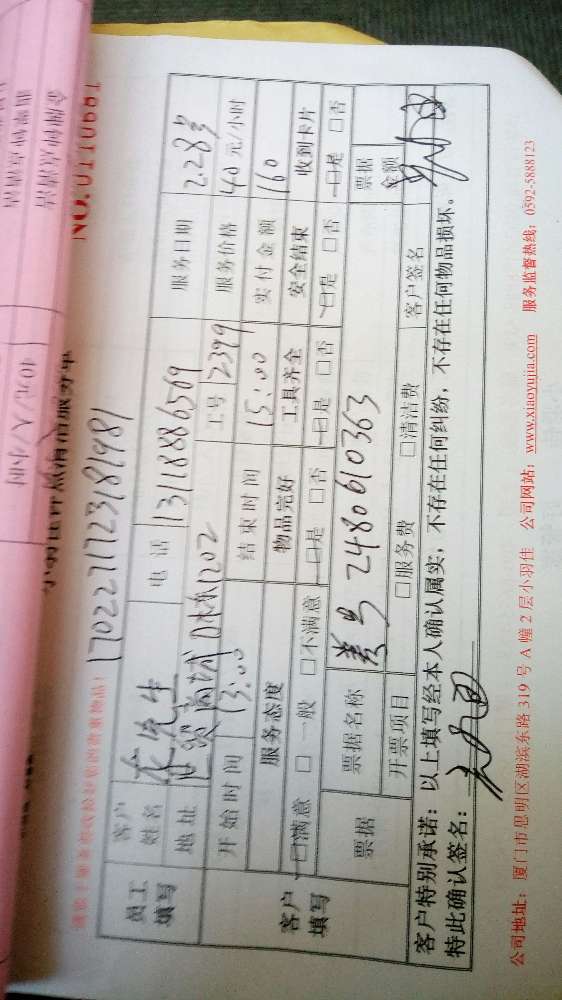 金牌钟点清洁
40元/人/小时
NO.0110681
1702271723181981
员工填写 客户姓名 花先生 电话 13118886509 服务日期 2.28号
地址 1202 工号 2399 服务价格 40元/小时
开始时间 13:00 结束时间 15:00 实付金额 160
客户填写 服务态度 物品完好 工具齐全 安全结束 收到卡片
☑满意 □一般 □不满意 ☑是 □否 ☑是 □否 ☑是 □否 ☑是 □否
票据 票据名称 2480610363 票据金额
开票项目 □服务费 □清洁费 客户签名
客户特别承诺：以上填写经本人确认属实，不存在任何纠纷，不存在任何物品损坏。
特此确认签名：
公司地址：厦门市思明区湖滨东路 319 号 A 幢 2 层小羽佳 公司网站：www.xiaoyujia.com 服务监督热线：0592-5888123